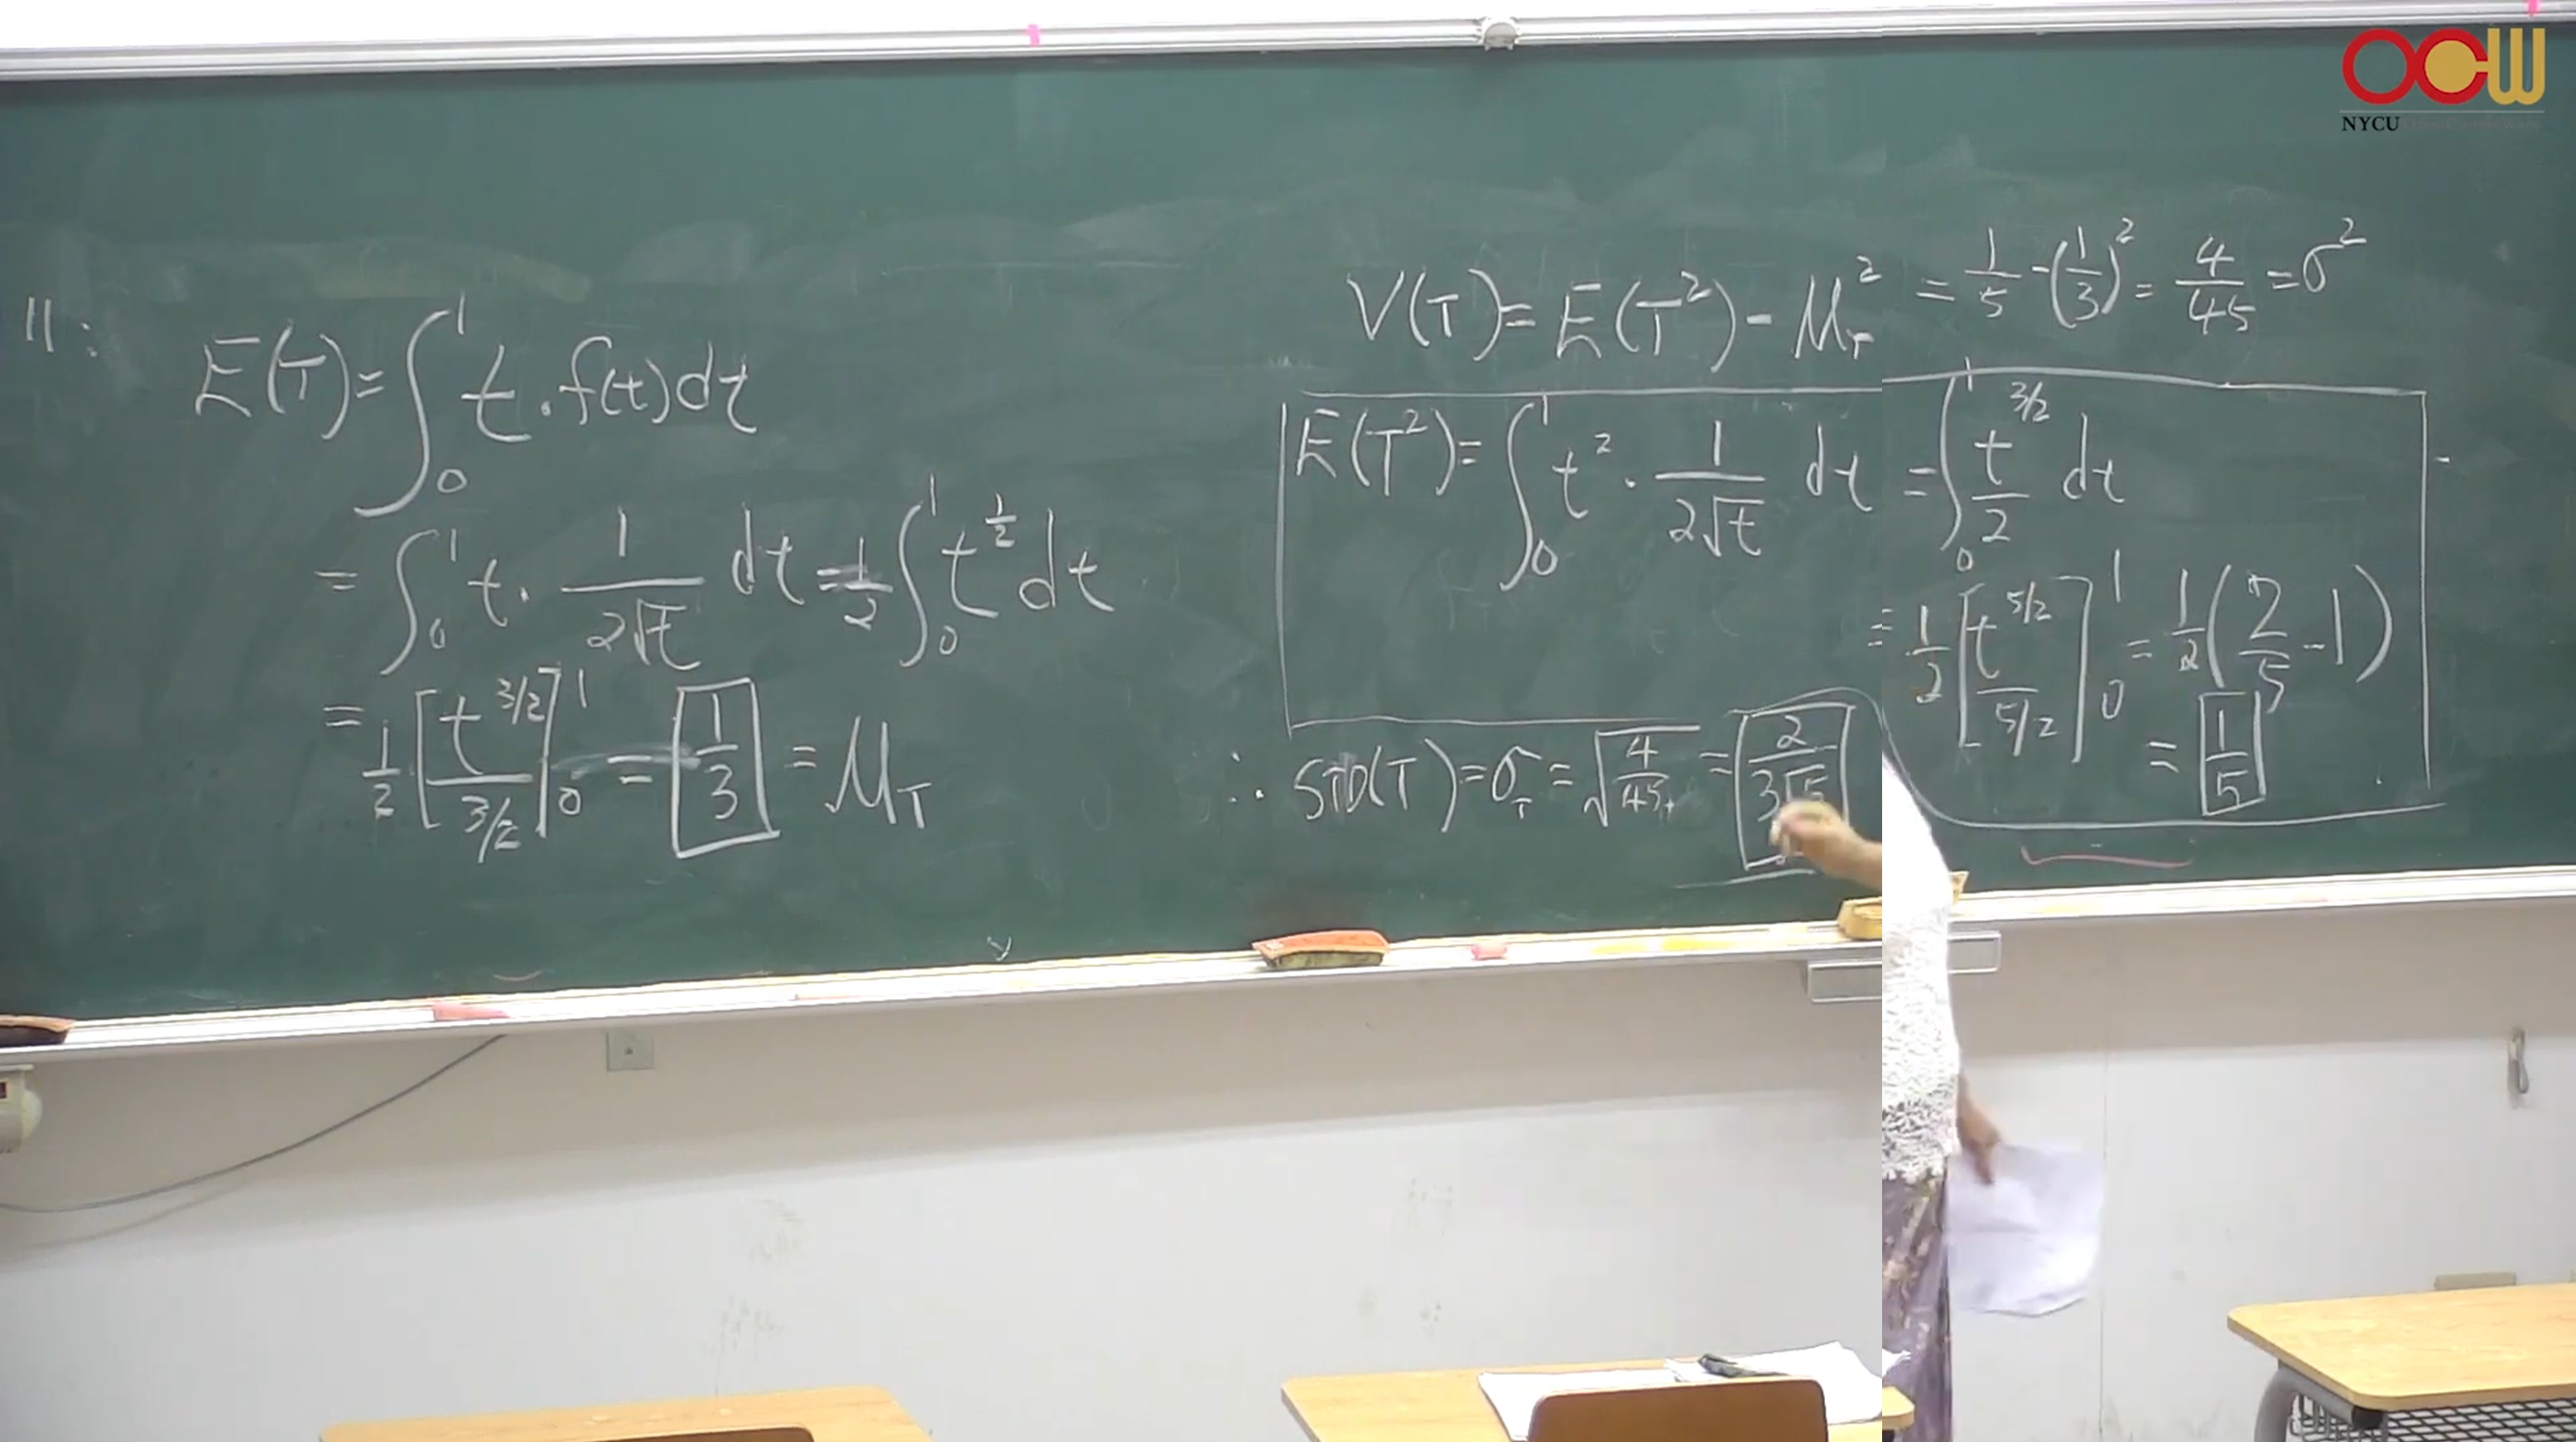 OCW
NYCU
11:
E(T) = ∫₀¹ t · f(t) dt
= ∫₀¹ t · 1/(2√t) dt = 1/2 ∫₀¹ t^(1/2) dt
= 1/2 [t^(3/2) / (3/2)]₀¹ = 1/3 = μ_T
V(T) = E(T²) - μ_T² = 1/5 - (1/3)² = 4/45 = σ²
E(T²) = ∫₀¹ t² · 1/(2√t) dt = ∫₀¹ t^(3/2)/2 dt
= 1/2 [t^(5/2) / (5/2)]₀¹ = 1/2 (2/5 - 1)
= 1/5
∴ STD(T) = σ_T = √(4/45) = 2/(3√5)